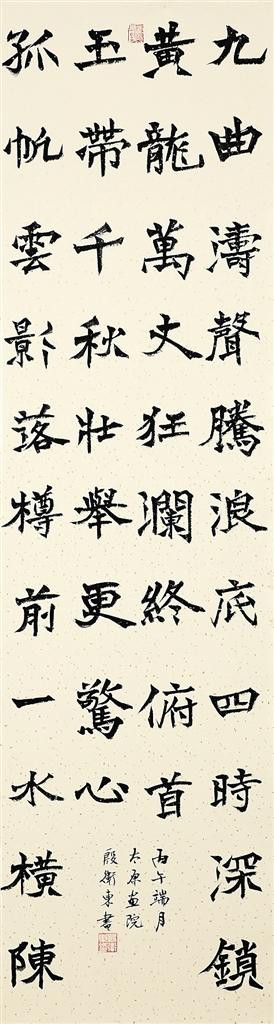 九曲濤聲騰浪底四時深鎖
黃龍萬丈狂瀾終俯首
玉帶千秋壯舉更驚心
孤帆雲影落樽前一水橫陳
丙午端月
太原画院
殷衛東書